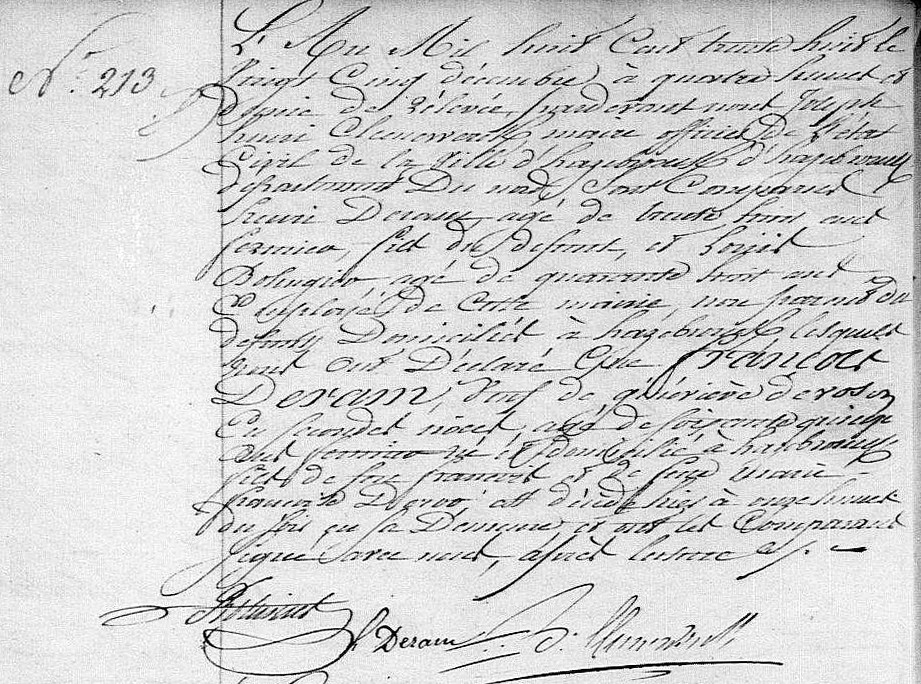 N° 213
L'An Mil huit Cent trente huit le
Vingt Cinq décembre, à quatre heures et
demie de relevée, pardevant nous Joseph
henri maire officier De l'état
Civil de la Ville d'hazebrouck d'hazebrouck
département Du nord, sont Comparus
henri Deram, agé de trente trois ans
fermier, fils du défunt, et Louis
agé de quarante trois ans
Employés de Cette mairie, non parent du
defunt, Domiciliés à hazebrouck lesquels
nous ont Déclaré Que François
Deram, Veuf de deroson
En secondes nôces, agé de soixante quinze
ans fermier né et domicilié à hazebrouck
fils de feu François et de feue marie
françoise est décédé hier à onze heures
du soir en sa Demeure, et ont les Comparans
signé avec nous, après lecture
h. Deram